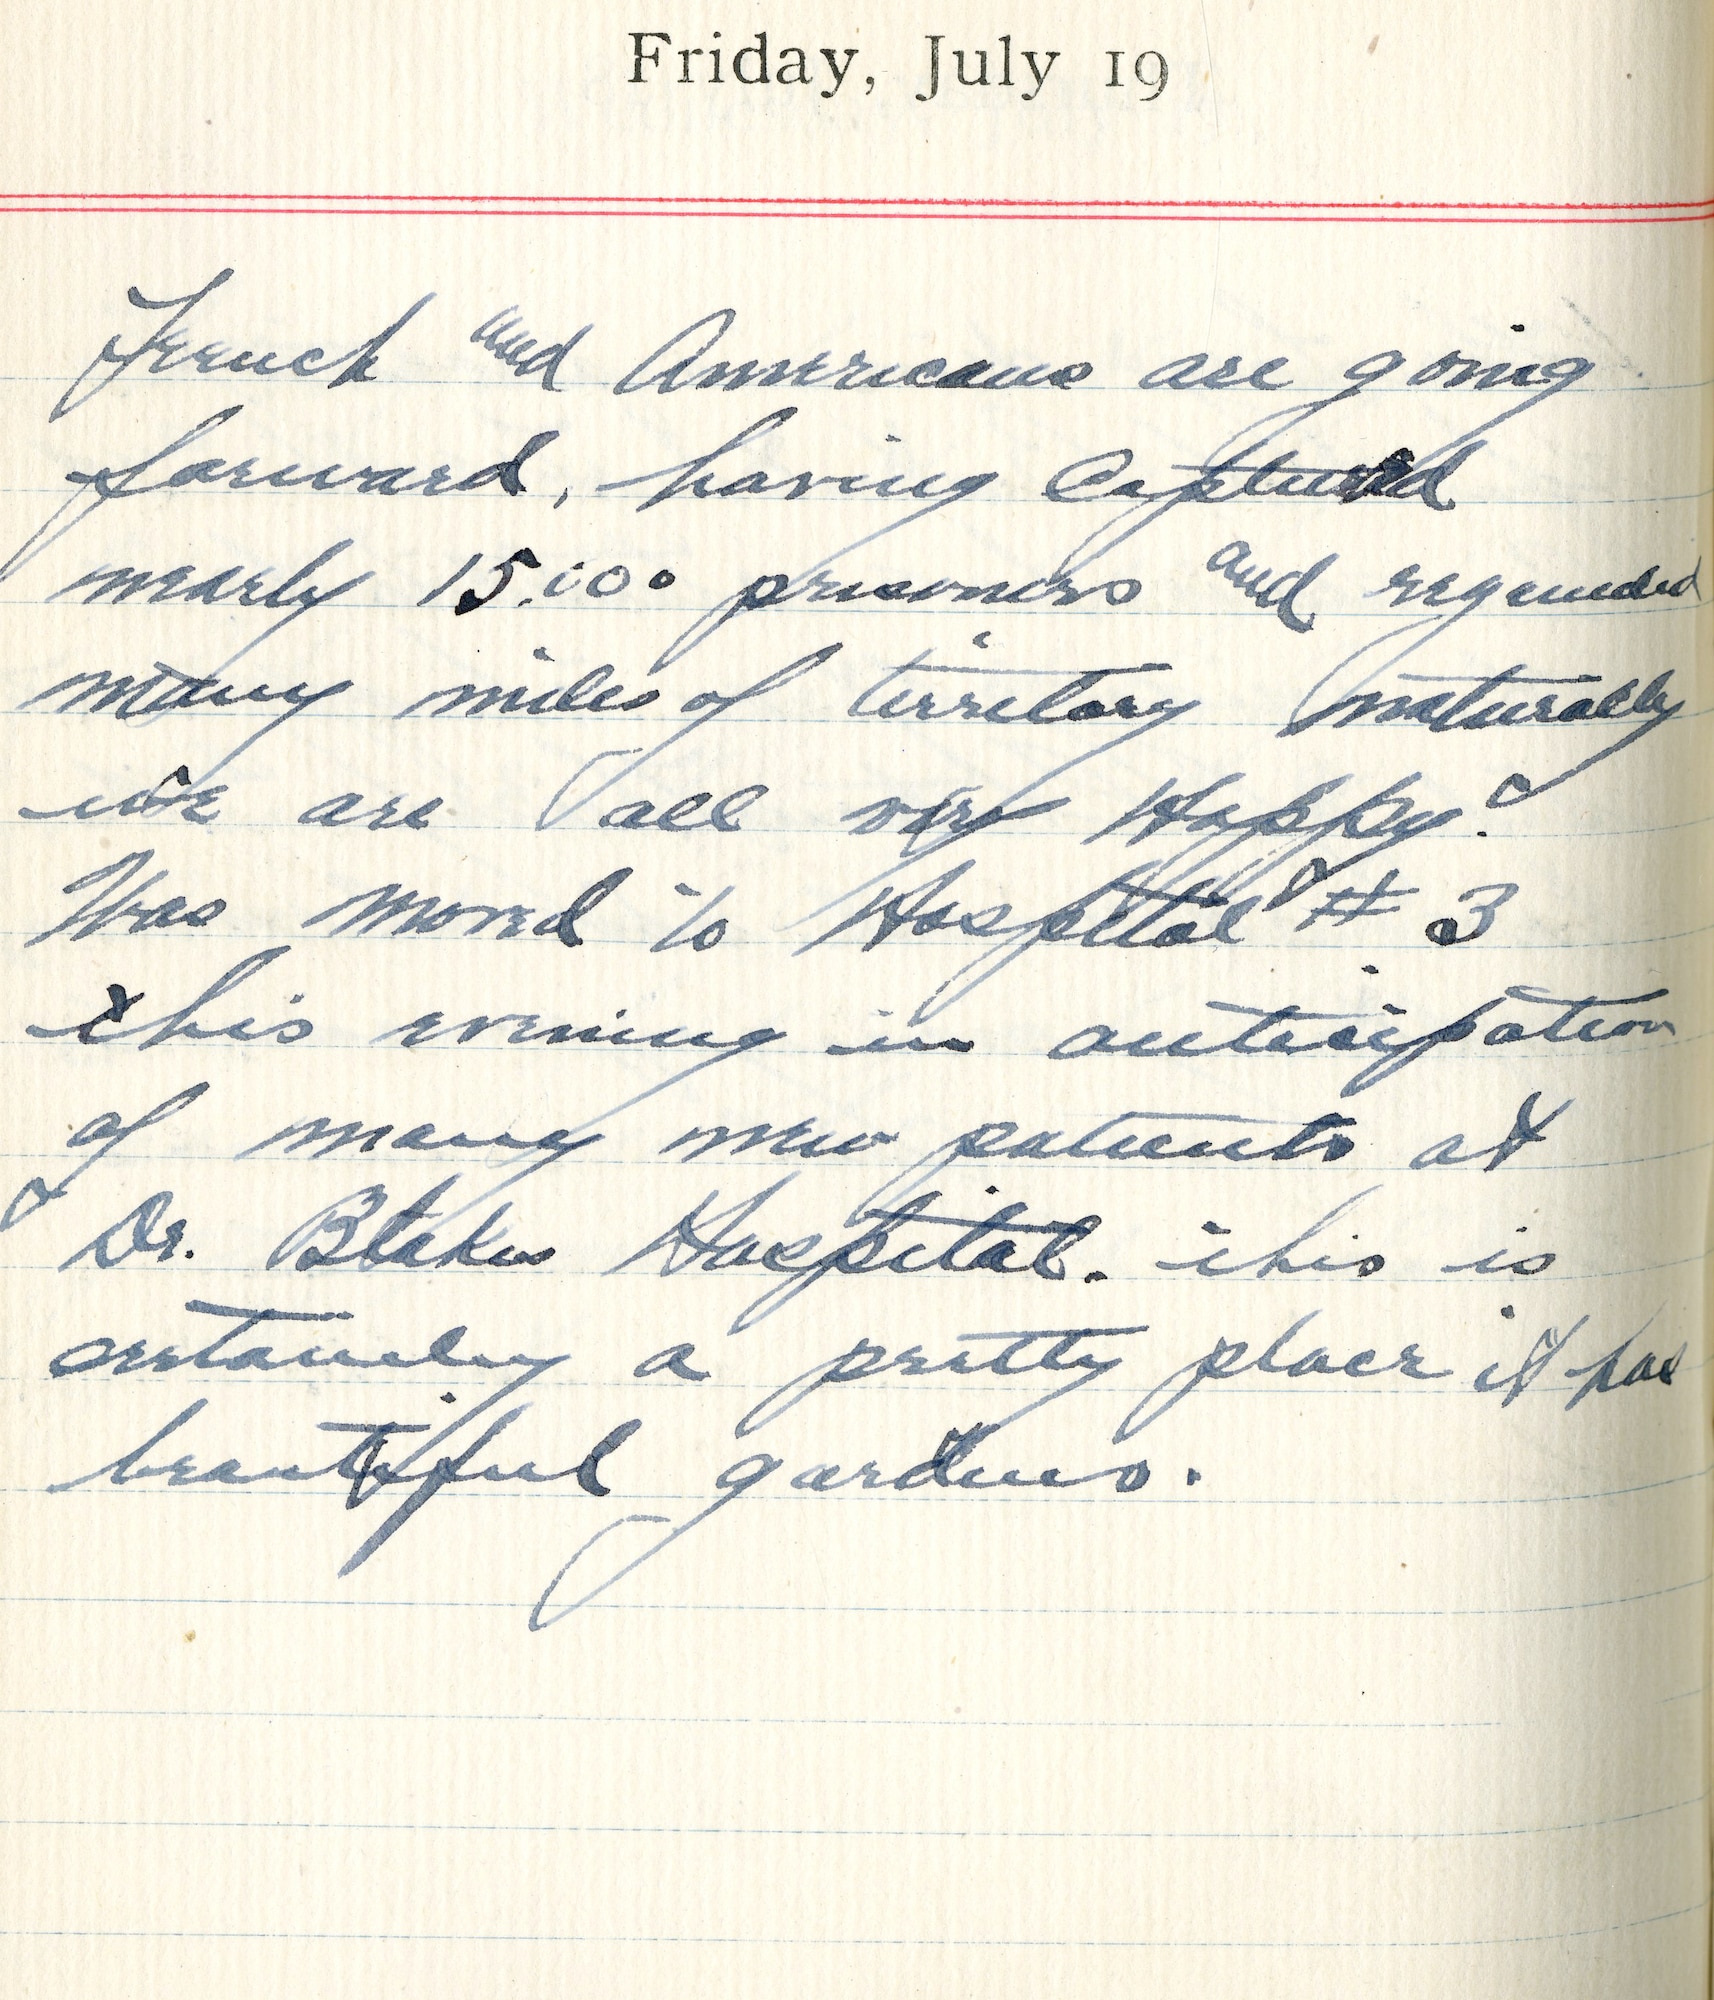 Friday, July 19
French and Americans are going
forward, having Captured
nearly 15,000 prisoners and regained
many miles of territory naturally
we are all very Happy.
Was moved to Hospital # 3
this evening in anticipation
of many new patients at
Dr. Blakes Hospital. this is
certainly a pretty place it has
beautiful gardens.